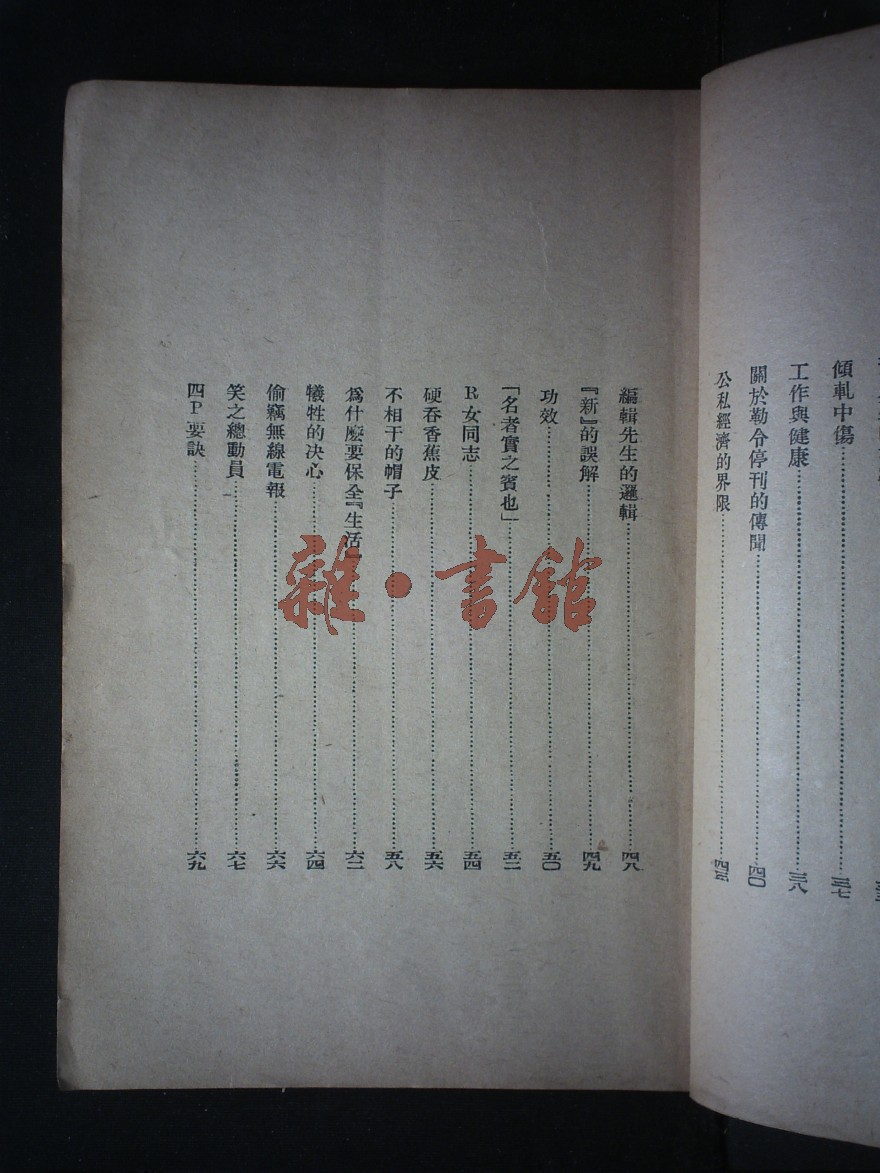 傾軋中傷……三七
工作與健康……三八
關於勒令停刊的傳聞……四〇
公私經濟的界限……四三
編輯先生的邏輯……四八
『新』的誤解……四九
功效……五〇
「名者實之賓也」……五二
R女同志……五四
硬吞香蕉皮……五六
不相干的帽子……五八
爲什麼要保全『生活……六二
犧牲的决心……六四
偷竊無線電報……六六
笑之總動員……六七
四P要訣……六九
雜·書館